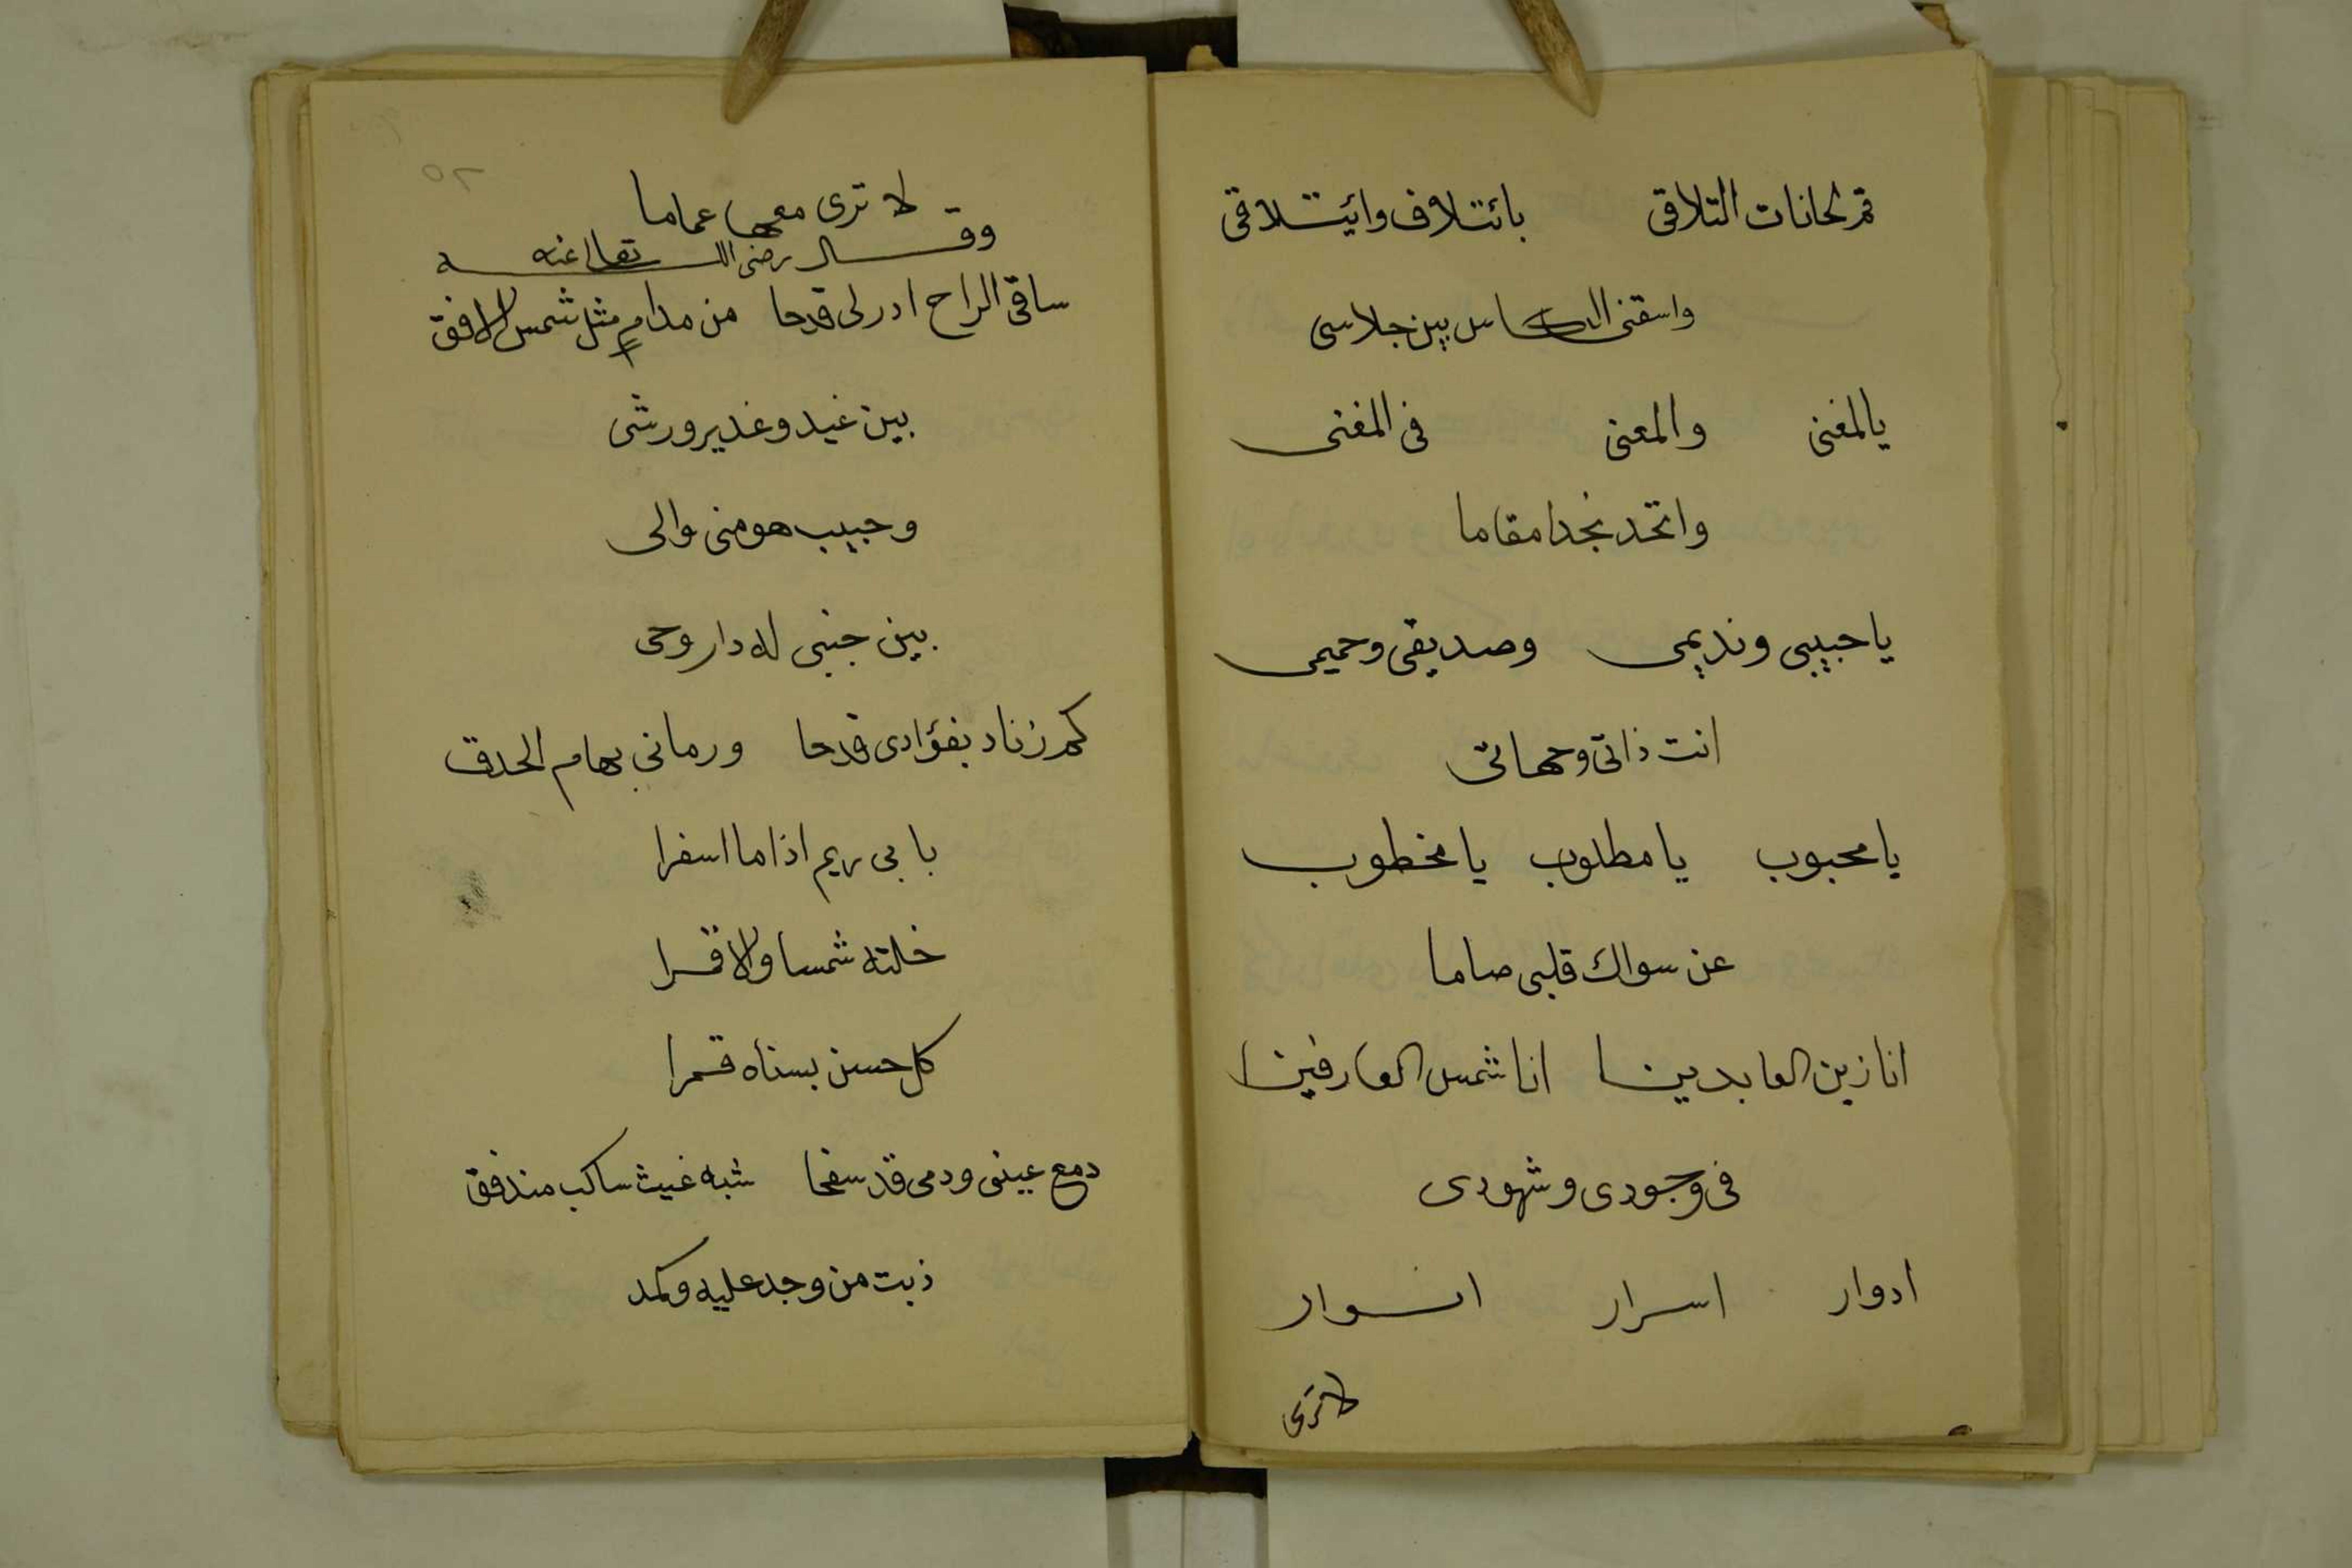 قم لحانات التلاقى بائتلاف وائيتلاقى
واسقنى الكاس بين جلاسى
يالمغنى والمعنى فى المغنى
واتخد نجدا مقاما
يا حبيبى ونديمى وصديقى وحميمى
انت ذاتى وحماتى
يا محبوب يا مطلوب يا مخطوب
عن سواك قلبى صاما
انا زين العابدينا انا شمس العارفينا
فى وجودى وشهودى
ادوار اسرار انوار
لا ترى
٥٢
لا ترى معها عماما
وقال رضى الله تعالى عنه
ساقى الراح ادر لى قدحا من مدام مثل شمس الافق
بين غيد وغدير ورشى
وحبيب هو منى والى
بين جنبى له دار وحى
كم زناد بفؤادى قدحا ورمانى بهام الحدق
بابى ريم اذا ما اسفرا
خلته شمسا والا قمرا
كل حسن بسناه قمرا
دمع عينى ودمى قد سفحا شبه غيث ساكب مندفق
ذبت من وجد عليه وكمد